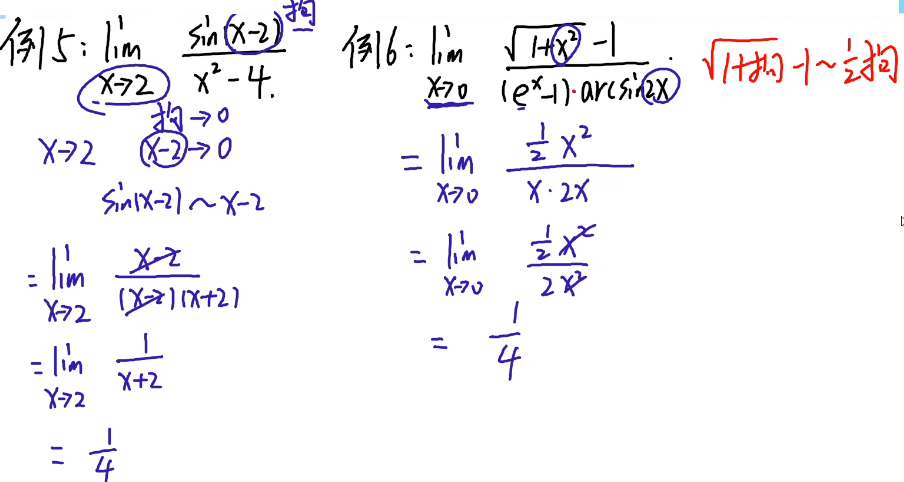 例5: lim x→2 sin(x-2) / x²-4. 狗
狗→0
x→2 x-2→0
sin(x-2)~x-2
= lim x→2 x-2 / (x-2)(x+2)
= lim x→2 1 / x+2
= 1/4
例6: lim x→0 √1+x² -1 / (eˣ-1)·arcsin2x
√1+狗 -1~1/2狗
= lim x→0 1/2 x² / x·2x
= lim x→0 1/2 x² / 2x²
= 1/4